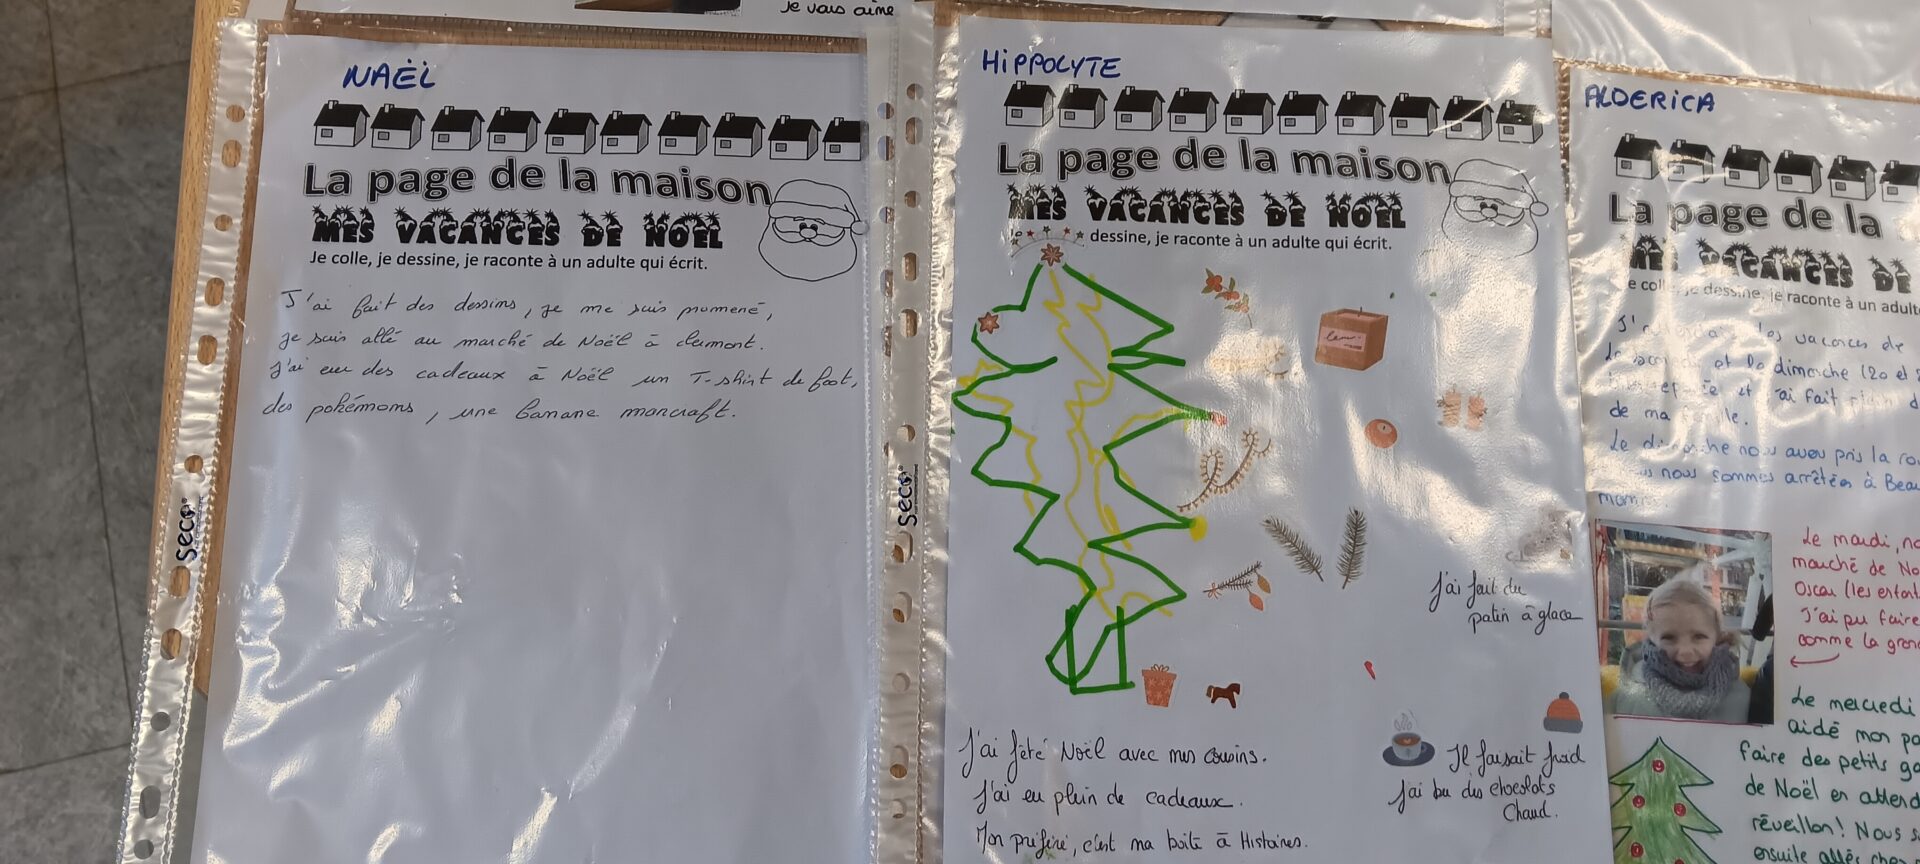 je vais aime
NAËL
La page de la maison
MES VACANCES DE NOËL
Je colle, je dessine, je raconte à un adulte qui écrit.
J'ai fait des dessins, je me suis promené,
je suis allé au marché de Noël à clermont.
J'ai eu des cadeaux à Noël un T-shirt de foot,
des pokémoms, une banane morcraft.
seco
seco
HiPPOLYTE
La page de la maison
MES VACANCES DE NOËL
dessine, je raconte à un adulte qui écrit.
J'ai fait du
patin à glace
J'ai fêté Noël avec mes cousins.
J'ai eu plein de cadeaux.
Mon préféré, c'est ma boite à Histoires.
Il faisait froid
J'ai bu des chocolats
Chaud.
ALDERICA
La page de la
MES VACANCES DE
je dessine, je raconte à un adulte
les vacances de
et le dimanche (20 et
et j'ai fait
de ma famille.
Le dimanche nous avons pris la
nous nous sommes arrêtées à Beau
Le mardi, no
marché de No
Oscar (les
J'ai pu faire
comme la gran
Le mercredi
aidé mon pa
faire des petits ga
de Noël en attend
réveillon! Nous s
ensuite allés chez